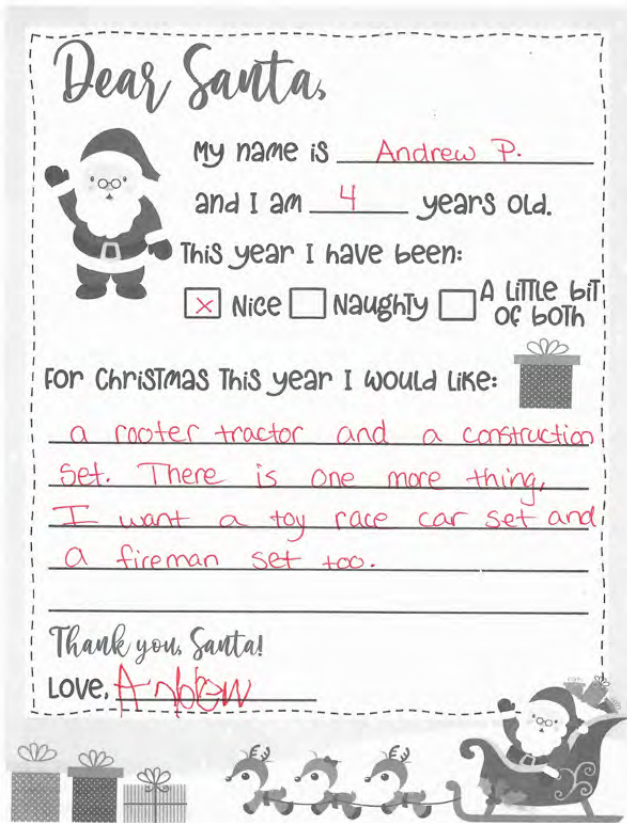 Dear Santa,
My name is Andrew P.
and I am 4 years old.
This year I have been:
x Nice Naughty A little bit of both
For Christmas this year I would like:
a rooter tractor and a construction
set. There is one more thing,
I want a toy race car set and
a fireman set too.
Thank you, Santa!
Love, Andrew